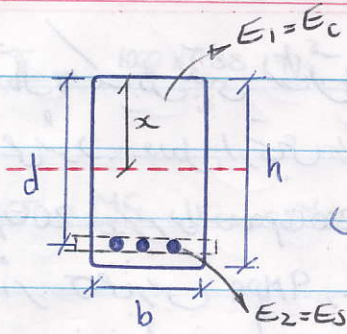 E₁ = E_c
x
d
h
b
E₂ = E_s